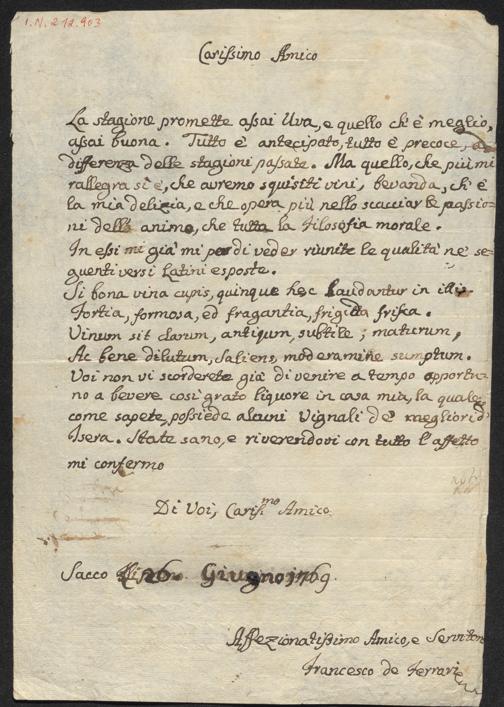 I.N. 212.903
Carissimo Amico
La stagione promette assai Uva, e quello ch'è meglio,
assai buona. Tutto è antecipato, tutto è precoce, a
differenza delle stagioni passate. Ma quello, che più mi
rallegra si è, che avremo squisiti vini, bevanda, ch'è
la mia delizia, e che opera più nello scacciar le passio-
ni dell' animo, che tutta la Filosofia morale.
In essi mi già mi par di veder riunite le qualità ne' se-
guenti versi Latini esposte.
Si bona vina cupis, quinque hec laudantur in illis
Fortia, formosa, ed fragantia, frigida frisca.
Vinum sit clarum, antiqum, subtile; maturum,
Ac bene dilutum, saliens, moderamine sumptum.
Voi non vi scorderete già di venire a tempo opportu-
no a bevere così grato liquore in casa mia, la quale
come sapete, possiede alcuni Vignali de' megliori d'
Isera. State sano, e riverendovi con tutto l'affetto
mi confermo
Di Voi, Cariss.mo Amico
Sacco 26 Giugno 1769.
Affezionatissimo Amico, e Servitore
Francesco de Ferrari